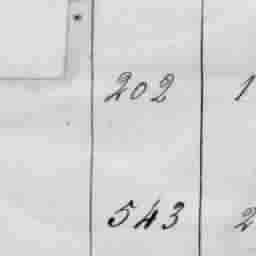 202 1
543 2